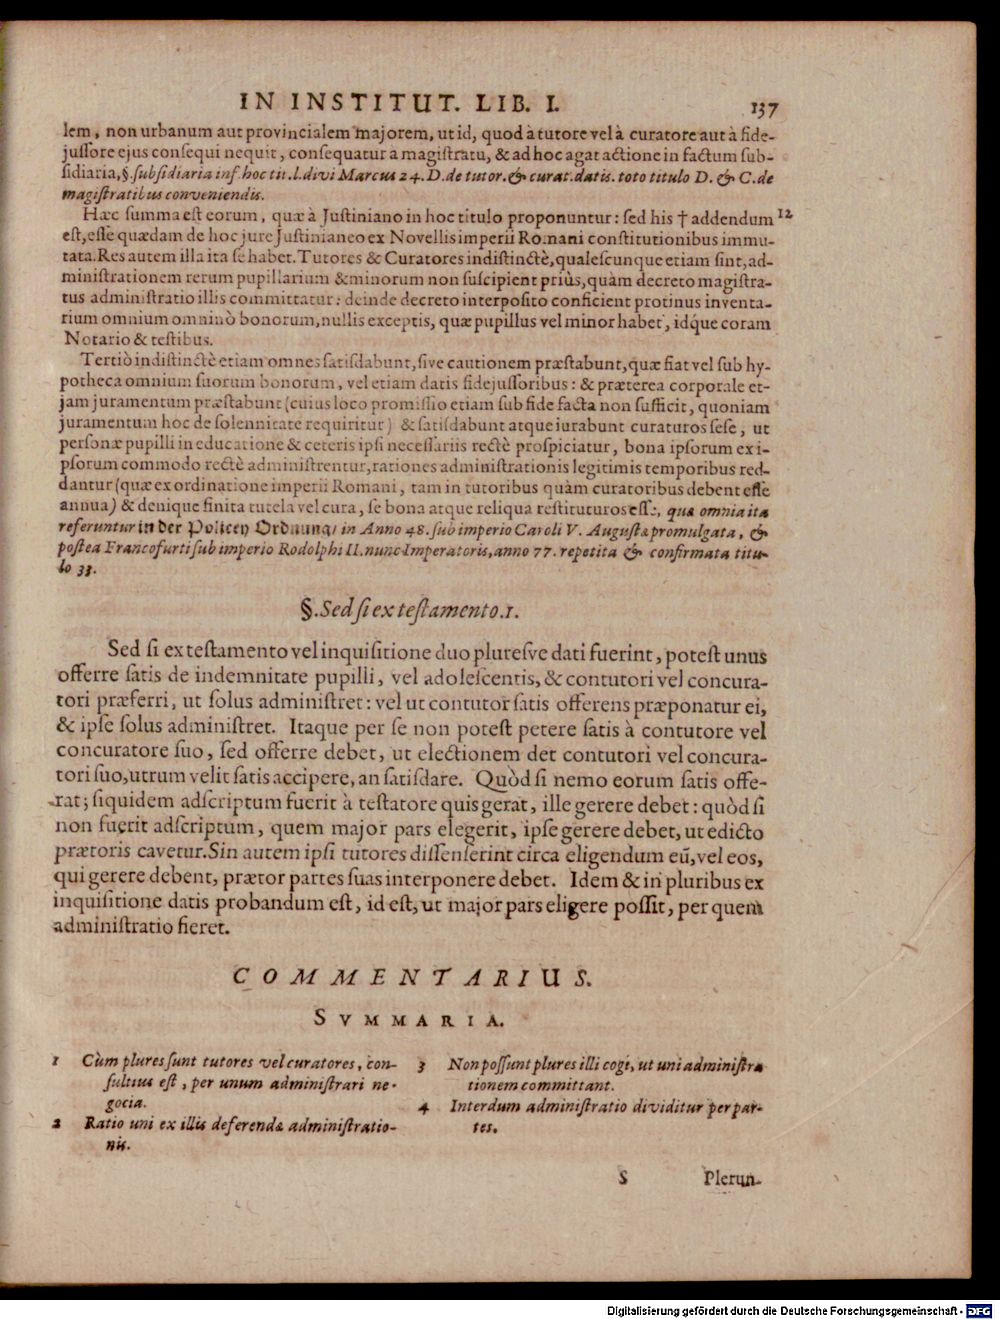 IN INSTITUT. LIB. I. 137
lem, non urbanum aut provincialem majorem, ut id, quod à tutore vel à curatore aut à fide-
jussore ejus consequi nequit, consequatur a magistratu, & ad hoc agat actione in factum sub-
sidiaria, §. subsidiaria inf. hoc tit. l. divi Marcus 24. D. de tutor. & curat. datis. toto titulo D. & C. de
magistratibus conveniendis.
Hæc summa est eorum, quæ à Justiniano in hoc titulo proponuntur: sed his † addendum 12
est, esse quædam de hoc jure Justinianeo ex Novellis imperii Romani constitutionibus immu-
tata. Res autem illa ita se habet. Tutores & Curatores indistinctè, qualescunque etiam sint, ad-
ministrationem rerum pupillarium & minorum non suscipient priùs, quàm decreto magistra-
tus administratio illis committatur: deinde decreto interposito conficient protinus inventa-
rium omnium omninò bonorum, nullis exceptis, quæ pupillus vel minor habet, idq́ue coram
Notario & testibus.
Tertiò indistinctè etiam omnes satisdabunt, sive cautionem præstabunt, quæ fiat vel sub hy-
potheca omnium suorum bonorum, vel etiam datis fidejussoribus: & præterea corporale et-
jam juramentum præstabunt (cuius loco promissio etiam sub fide facta non sufficit, quoniam
juramentum hoc de solennitate requiritur) & satisdabunt atque iurabunt curaturos sese, ut
personæ pupilli in educatione & ceteris ipsi necessariis rectè prospiciatur, bona ipsorum ex i-
psorum commodo rectè administrentur, rationes administrationis legitimis temporibus red-
dantur (quæ ex ordinatione imperii Romani, tam in tutoribus quàm curatoribus debent esse
annua) & denique finita tutela vel cura, se bona atque reliqua restituturos esse, quæ omnia ita
referuntur in der Policey Ordnung/ in Anno 48. sub imperio Caroli V. Augusta promulgata, &
postea Francofurti sub imperio Rodolphi II. nunc Imperatoris, anno 77. repetita & confirmata titu-
lo 33.
§. Sed si ex testamento. 1.
Sed si ex testamento vel inquisitione duo pluresve dati fuerint, potest unus
offerre satis de indemnitate pupilli, vel adolescentis, & contutori vel concura-
tori præferri, ut solus administret: vel ut contutor satis offerens præponatur ei,
& ipse solus administret. Itaque per se non potest petere satis à contutore vel
concuratore suo, sed offerre debet, ut electionem det contutori vel concura-
tori suo, utrum velit satis accipere, an satisdare. Quòd si nemo eorum satis offe-
rat; siquidem adscriptum fuerit à testatore quis gerat, ille gerere debet: quòd si
non fuerit adscriptum, quem major pars elegerit, ipse gerere debet, ut edicto
prætoris cavetur. Sin autem ipsi tutores dissenserint circa eligendum eū, vel eos,
qui gerere debent, prætor partes suas interponere debet. Idem & in pluribus ex
inquisitione datis probandum est, id est, ut major pars eligere possit, per quem
administratio fieret.
COMMENTARIUS.
SVMMARIA.
1 Cùm plures sunt tutores vel curatores, con-
sultius est, per unum administrari ne-
gocia.
2 Ratio uni ex illis deferendæ administratio-
nis.
3 Non possunt plures illi cogi, ut uni administra
tionem committant.
4 Interdum administratio dividitur per par-
tes.
S Plerun-
Digitalisierung gefördert durch die Deutsche Forschungsgemeinschaft - DFG